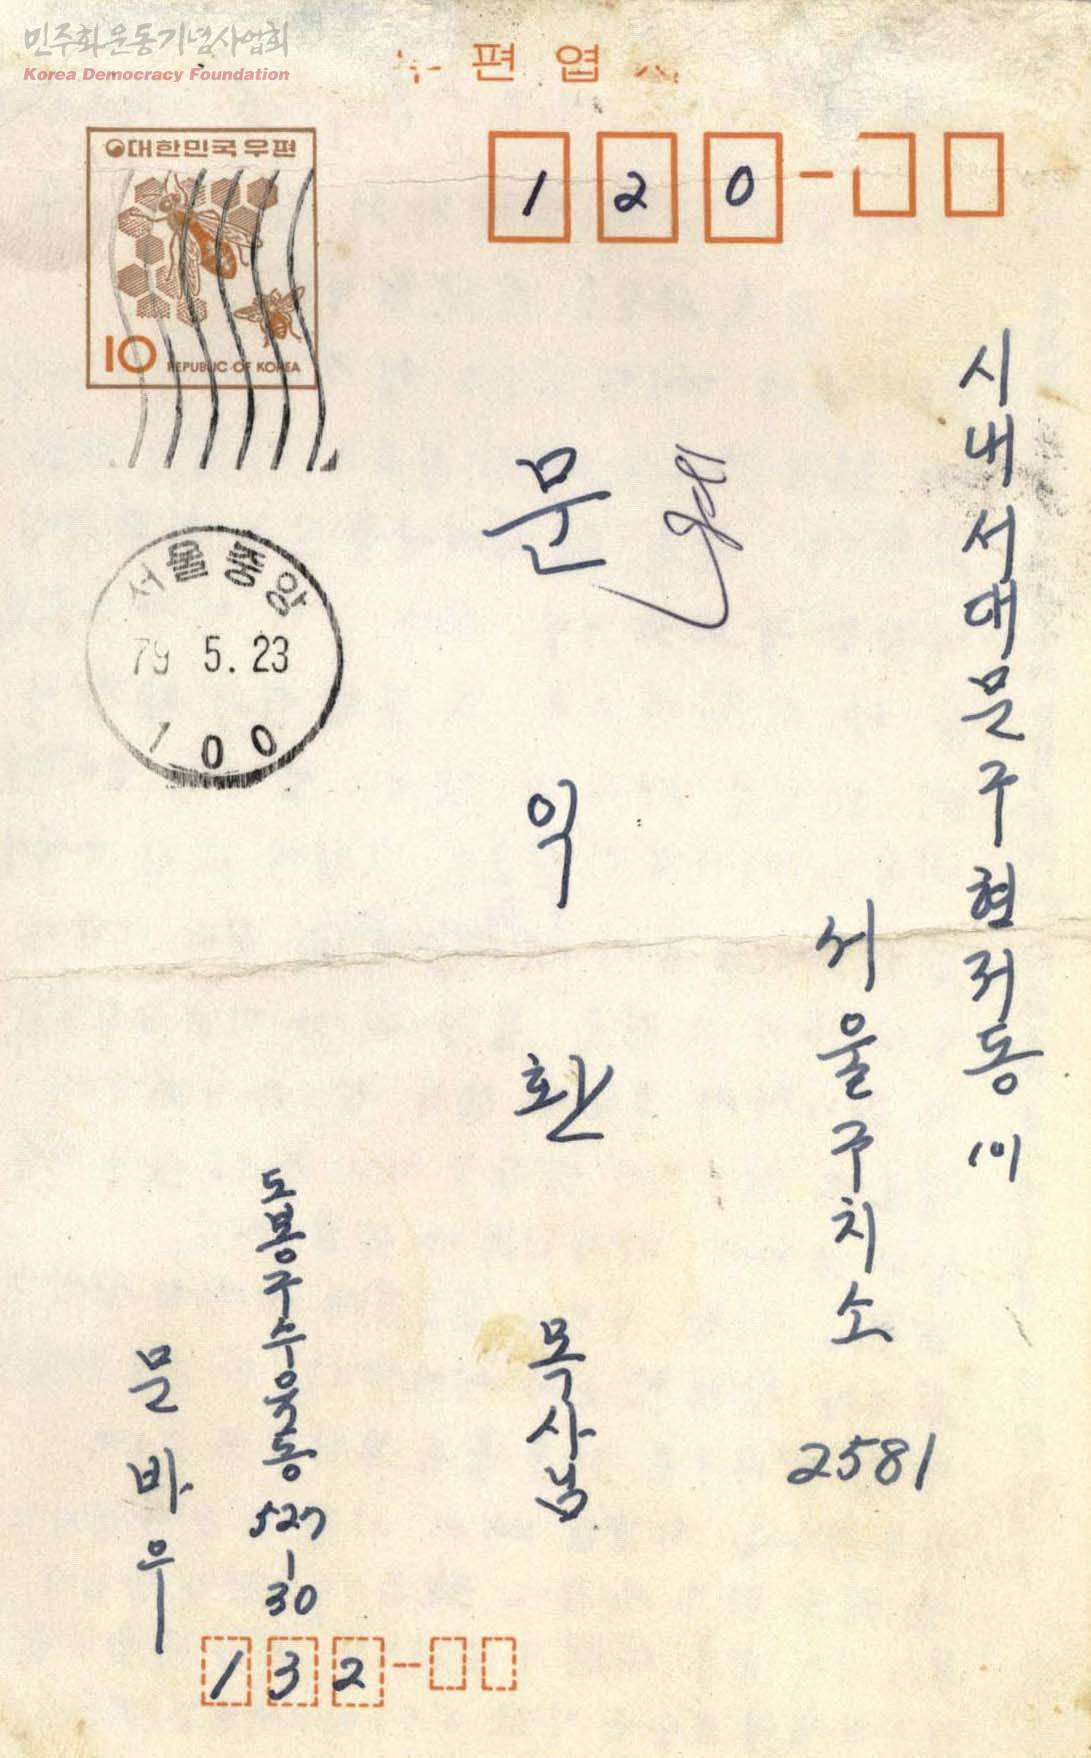 민주화운동기념사업회
Korea Democracy Foundation
우편엽서
대한민국우편
10 REPUBLIC OF KOREA
120-
서울중앙
79 5.23
100
시내서대문구현저동 101
서울구치소 2581
문익환 목사님
도봉구수유동 527-30
문바우
132-